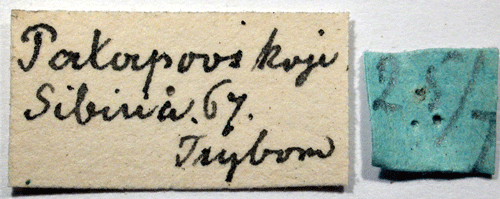 Patapovskoji
Sibiriä. 67.
Trybom
25/7